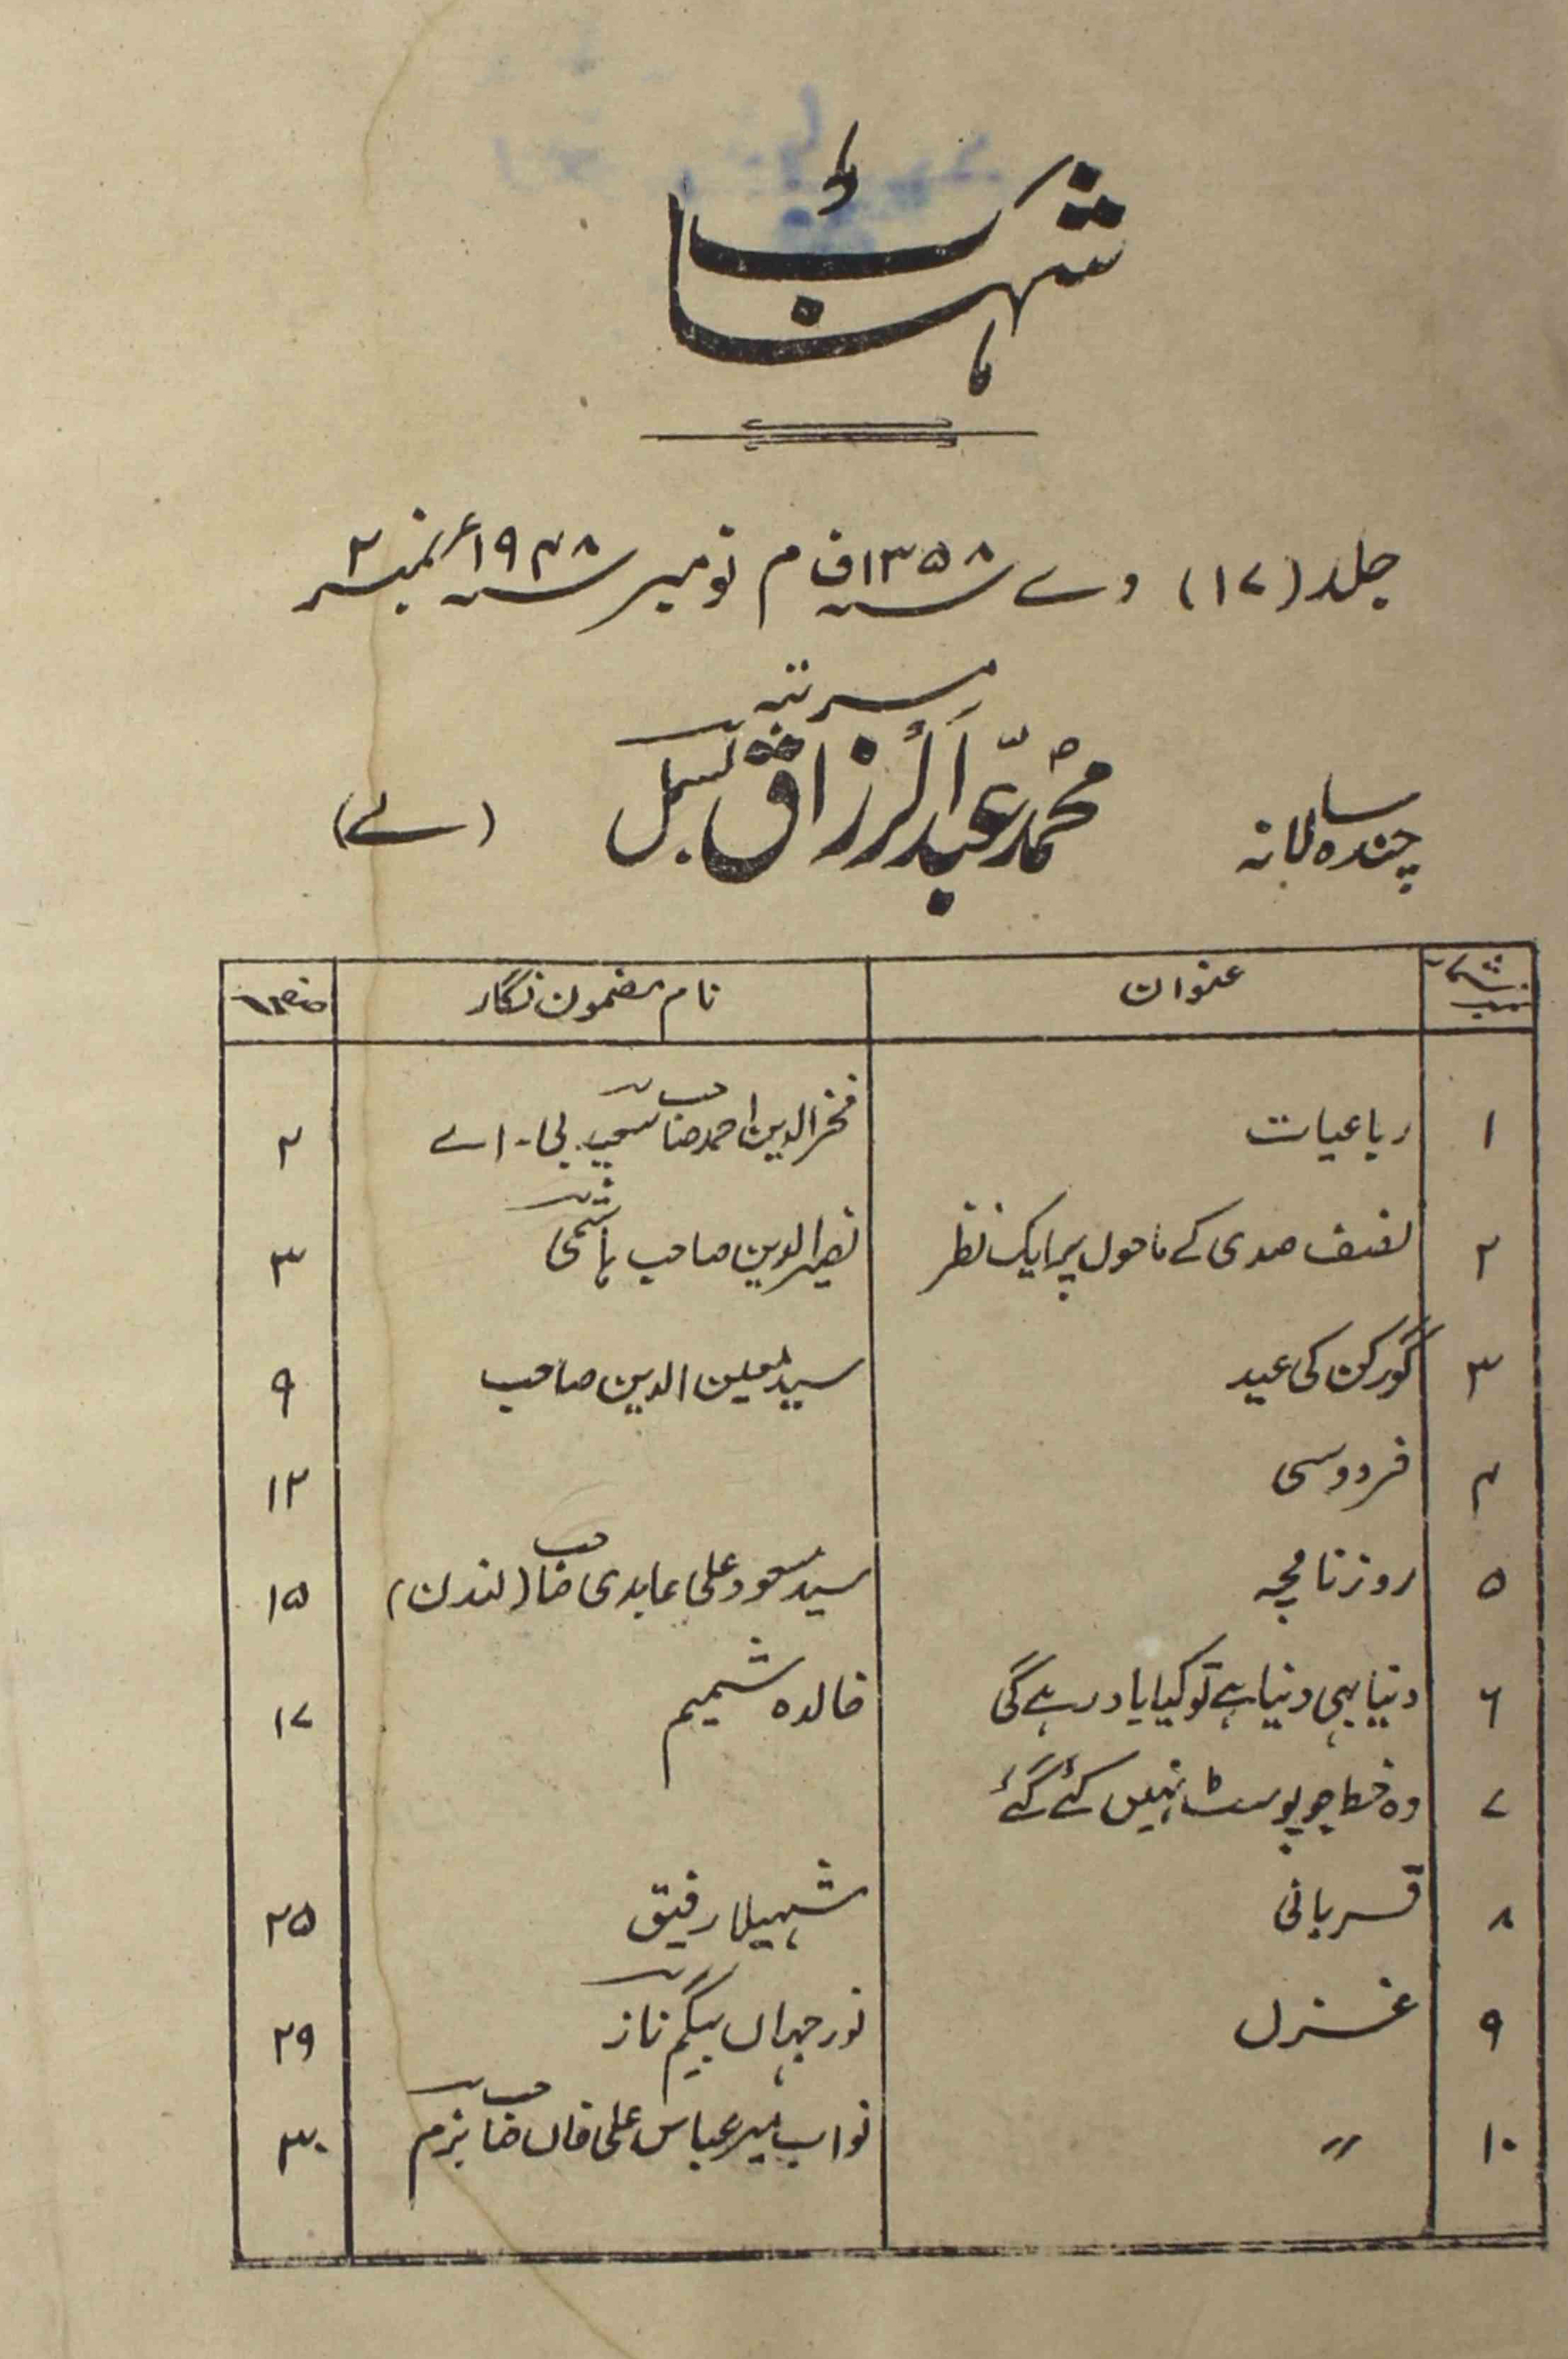 شہاب
جلد (۱۷) دے ۱۳۵۸ف م نومبر ۱۹۴۸ء نمبر ۲
مرتبہ
چندہ سالانہ محمد عبدالرزاق بسمل
نمبر شمار عنوان نام مضمون نگار صفحہ
۱ رباعیات فخرالدین احمد صاحب بی-اے ۲
۲ نصف صدی کے ماحول پر ایک نظر نصیرالدین صاحب ہاشمی ۳
۳ گورکن کی عید سید معین الدین صاحب ۹
۴ فردوسی ۱۲
۵ روزنامچہ سید مسعود علی عابدی صاحب (لندن) ۱۵
۶ دنیا یہی دنیا ہے تو کیا یاد رہے گی خالدہ شمیم ۱۷
۷ وہ خط جو پوسٹ نہیں کئے گئے
۸ قربانی شہیلا رفیق ۲۵
۹ غزل نور جہاں بیگم ناز ۲۹
۱۰ " نواب میر عباس علی خاں صاحب بزم ۳۰